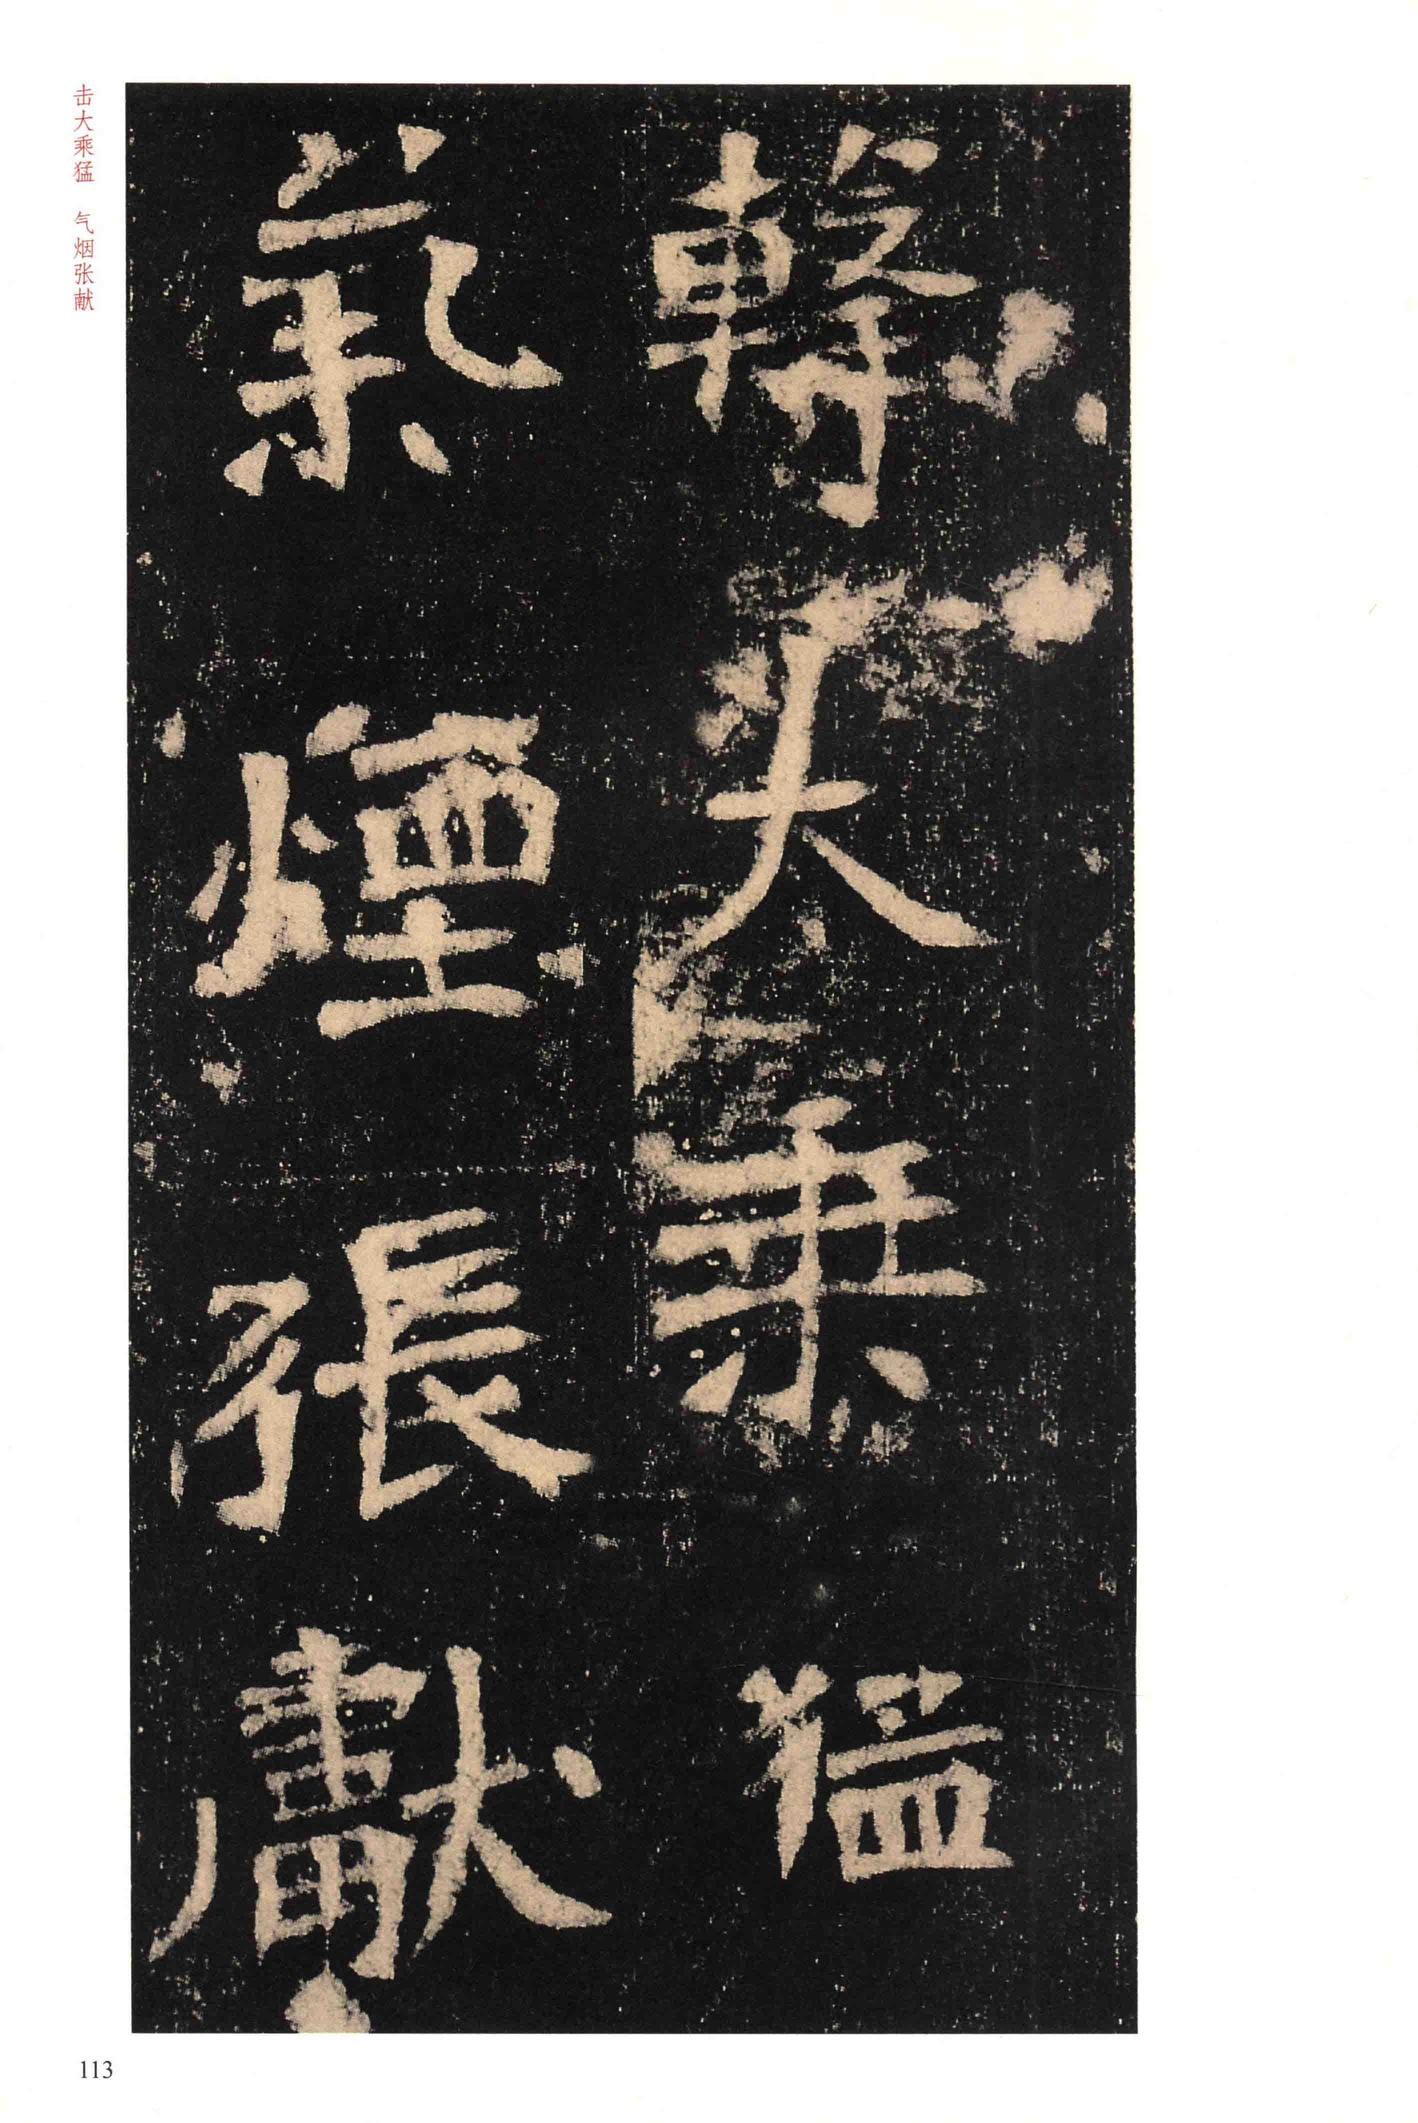 擊大乘猛
氣煙張獻
击大乘猛 气烟张献
113